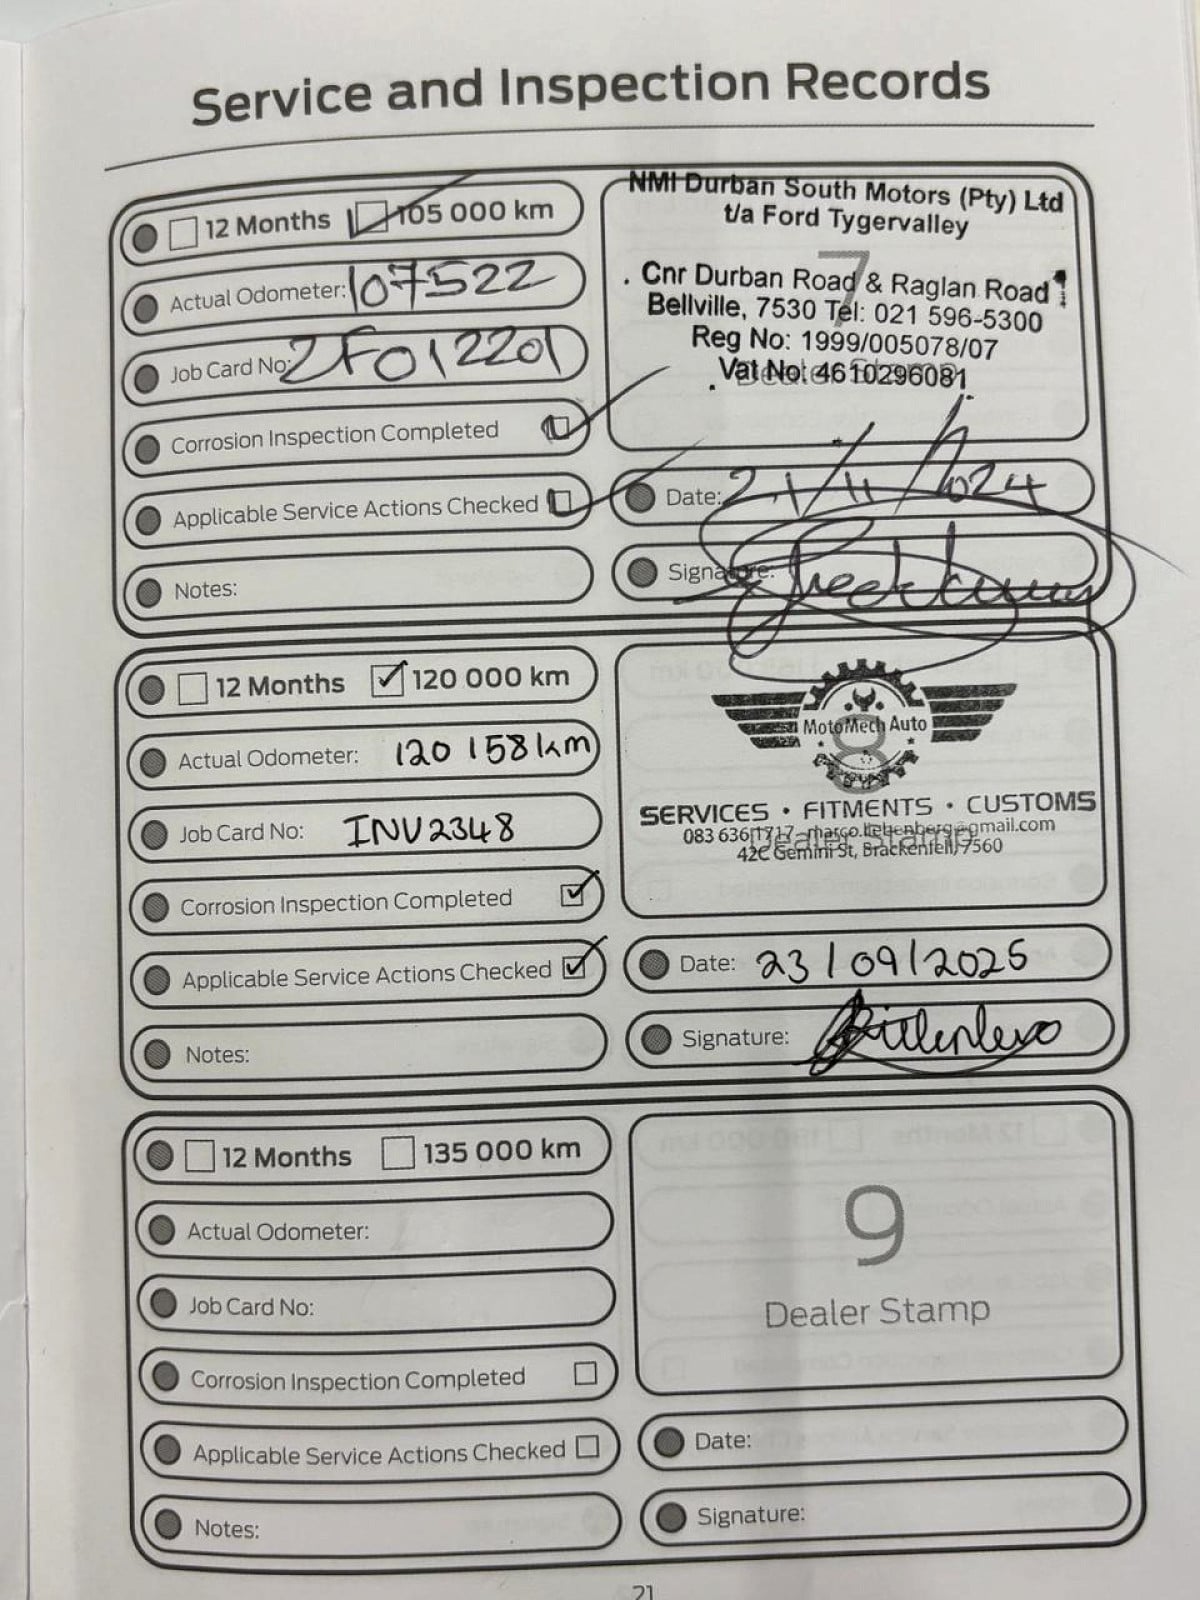 Service and Inspection Records
12 Months 105 000 km
Actual Odometer: 107522
Job Card No: ZF012201
Corrosion Inspection Completed
Applicable Service Actions Checked
Notes:
NMI Durban South Motors (Pty) Ltd
t/a Ford Tygervalley
7
Cnr Durban Road & Raglan Road
Bellville, 7530 Tel: 021 596-5300
Reg No: 1999/005078/07
Vat No: 4610296081
Dealer Stamp
Date: 21/11/2024
Signature:
12 Months 120 000 km
Actual Odometer: 120 158km
Job Card No: INV2348
Corrosion Inspection Completed
Applicable Service Actions Checked
Notes:
MotoMech Auto
8
SERVICES • FITMENTS • CUSTOMS
083 636 1717 marco.liebenberg@gmail.com
Dealer Stamp
42C Gemini St, Brackenfell, 7560
Date: 23/09/2025
Signature:
12 Months 135 000 km
Actual Odometer:
Job Card No:
Corrosion Inspection Completed
Applicable Service Actions Checked
Notes:
9
Dealer Stamp
Date:
Signature:
21